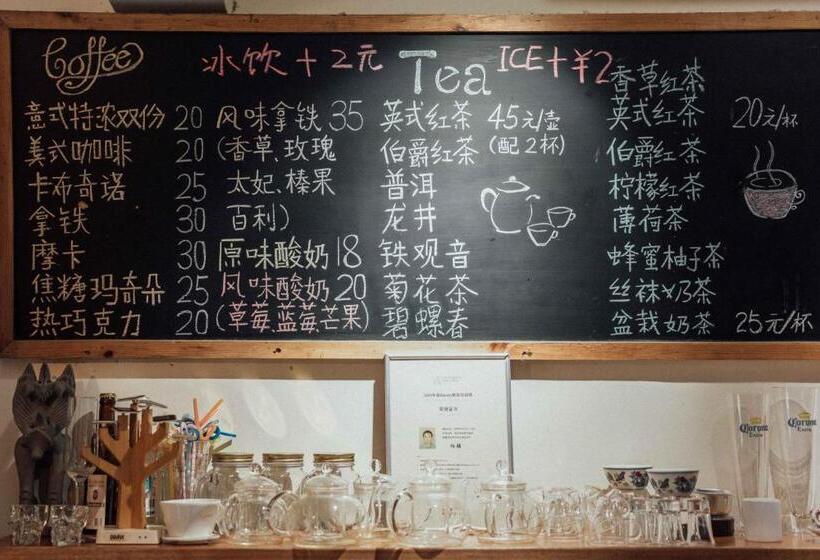 Coffee
冰饮+2元
Tea
ICE+¥2
意式特浓双份 20
美式咖啡 20
卡布奇诺 25
拿铁 30
摩卡 30
焦糖玛奇朵 25
热巧克力 20
风味拿铁 35
(香草、玫瑰
太妃、榛果
百利)
原味酸奶 18
风味酸奶 20
(草莓、蓝莓、芒果)
英式红茶 45元/壶
伯爵红茶 (配2杯)
普洱
龙井
铁观音
菊花茶
碧螺春
香草红茶
英式红茶 20元/杯
伯爵红茶
柠檬红茶
薄荷茶
蜂蜜柚子茶
丝袜奶茶
盆栽奶茶 25元/杯
Corona
Extra
Corona
Extra